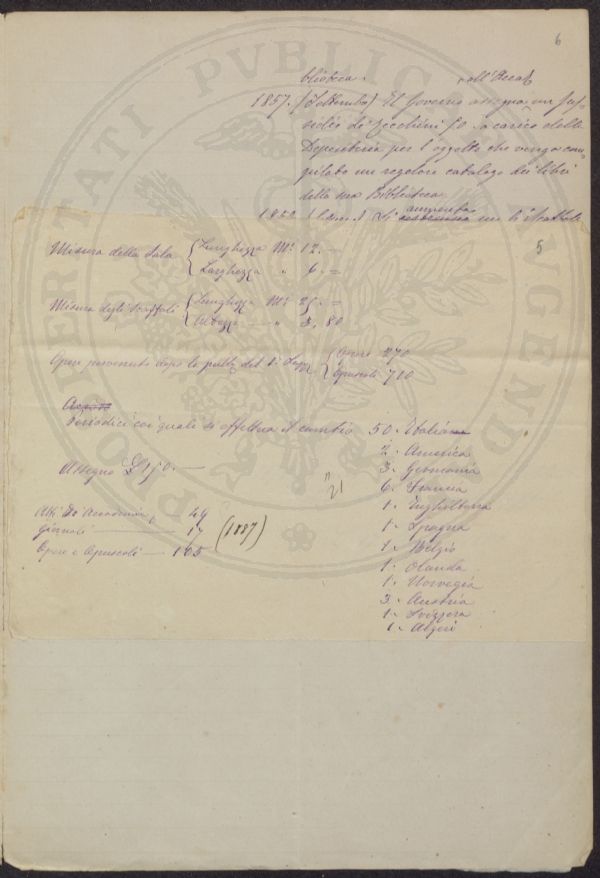 6
blioteca. coll'Accad
1857. (Settembre) Il Governo assegna un sus-
sidio di Zecchini 50 a carico della
Depositeria per l'oggetto che venga com-
pilato un regolare catalogo dei libri
della sua Biblioteca
5
Misura della Sala { Lunghezza Mi 12. =
Larghezza " 6. =
Misura degli scaffali { Lunghezza Mi 25. =
Altezza — " 3, 80
Opere pervenute dopo la pubb. del { Opere 270
Opuscoli 700
Periodici coi quali si effettua il cambio 50. Italia
2. America
3. Germania
Assegno £ 150. —
6. Francia
" 21
1. Inghilterra
Atti di Accademie, 49
1. Spagna
Giornali — 17 (1887)
1. Belgio
Opere e Opuscoli — 165
1. Olanda
1. Norvegia
3. Austria
1. Svizzera
1. Algeri
LIBERTATI PVBLICAE AVGENDAE